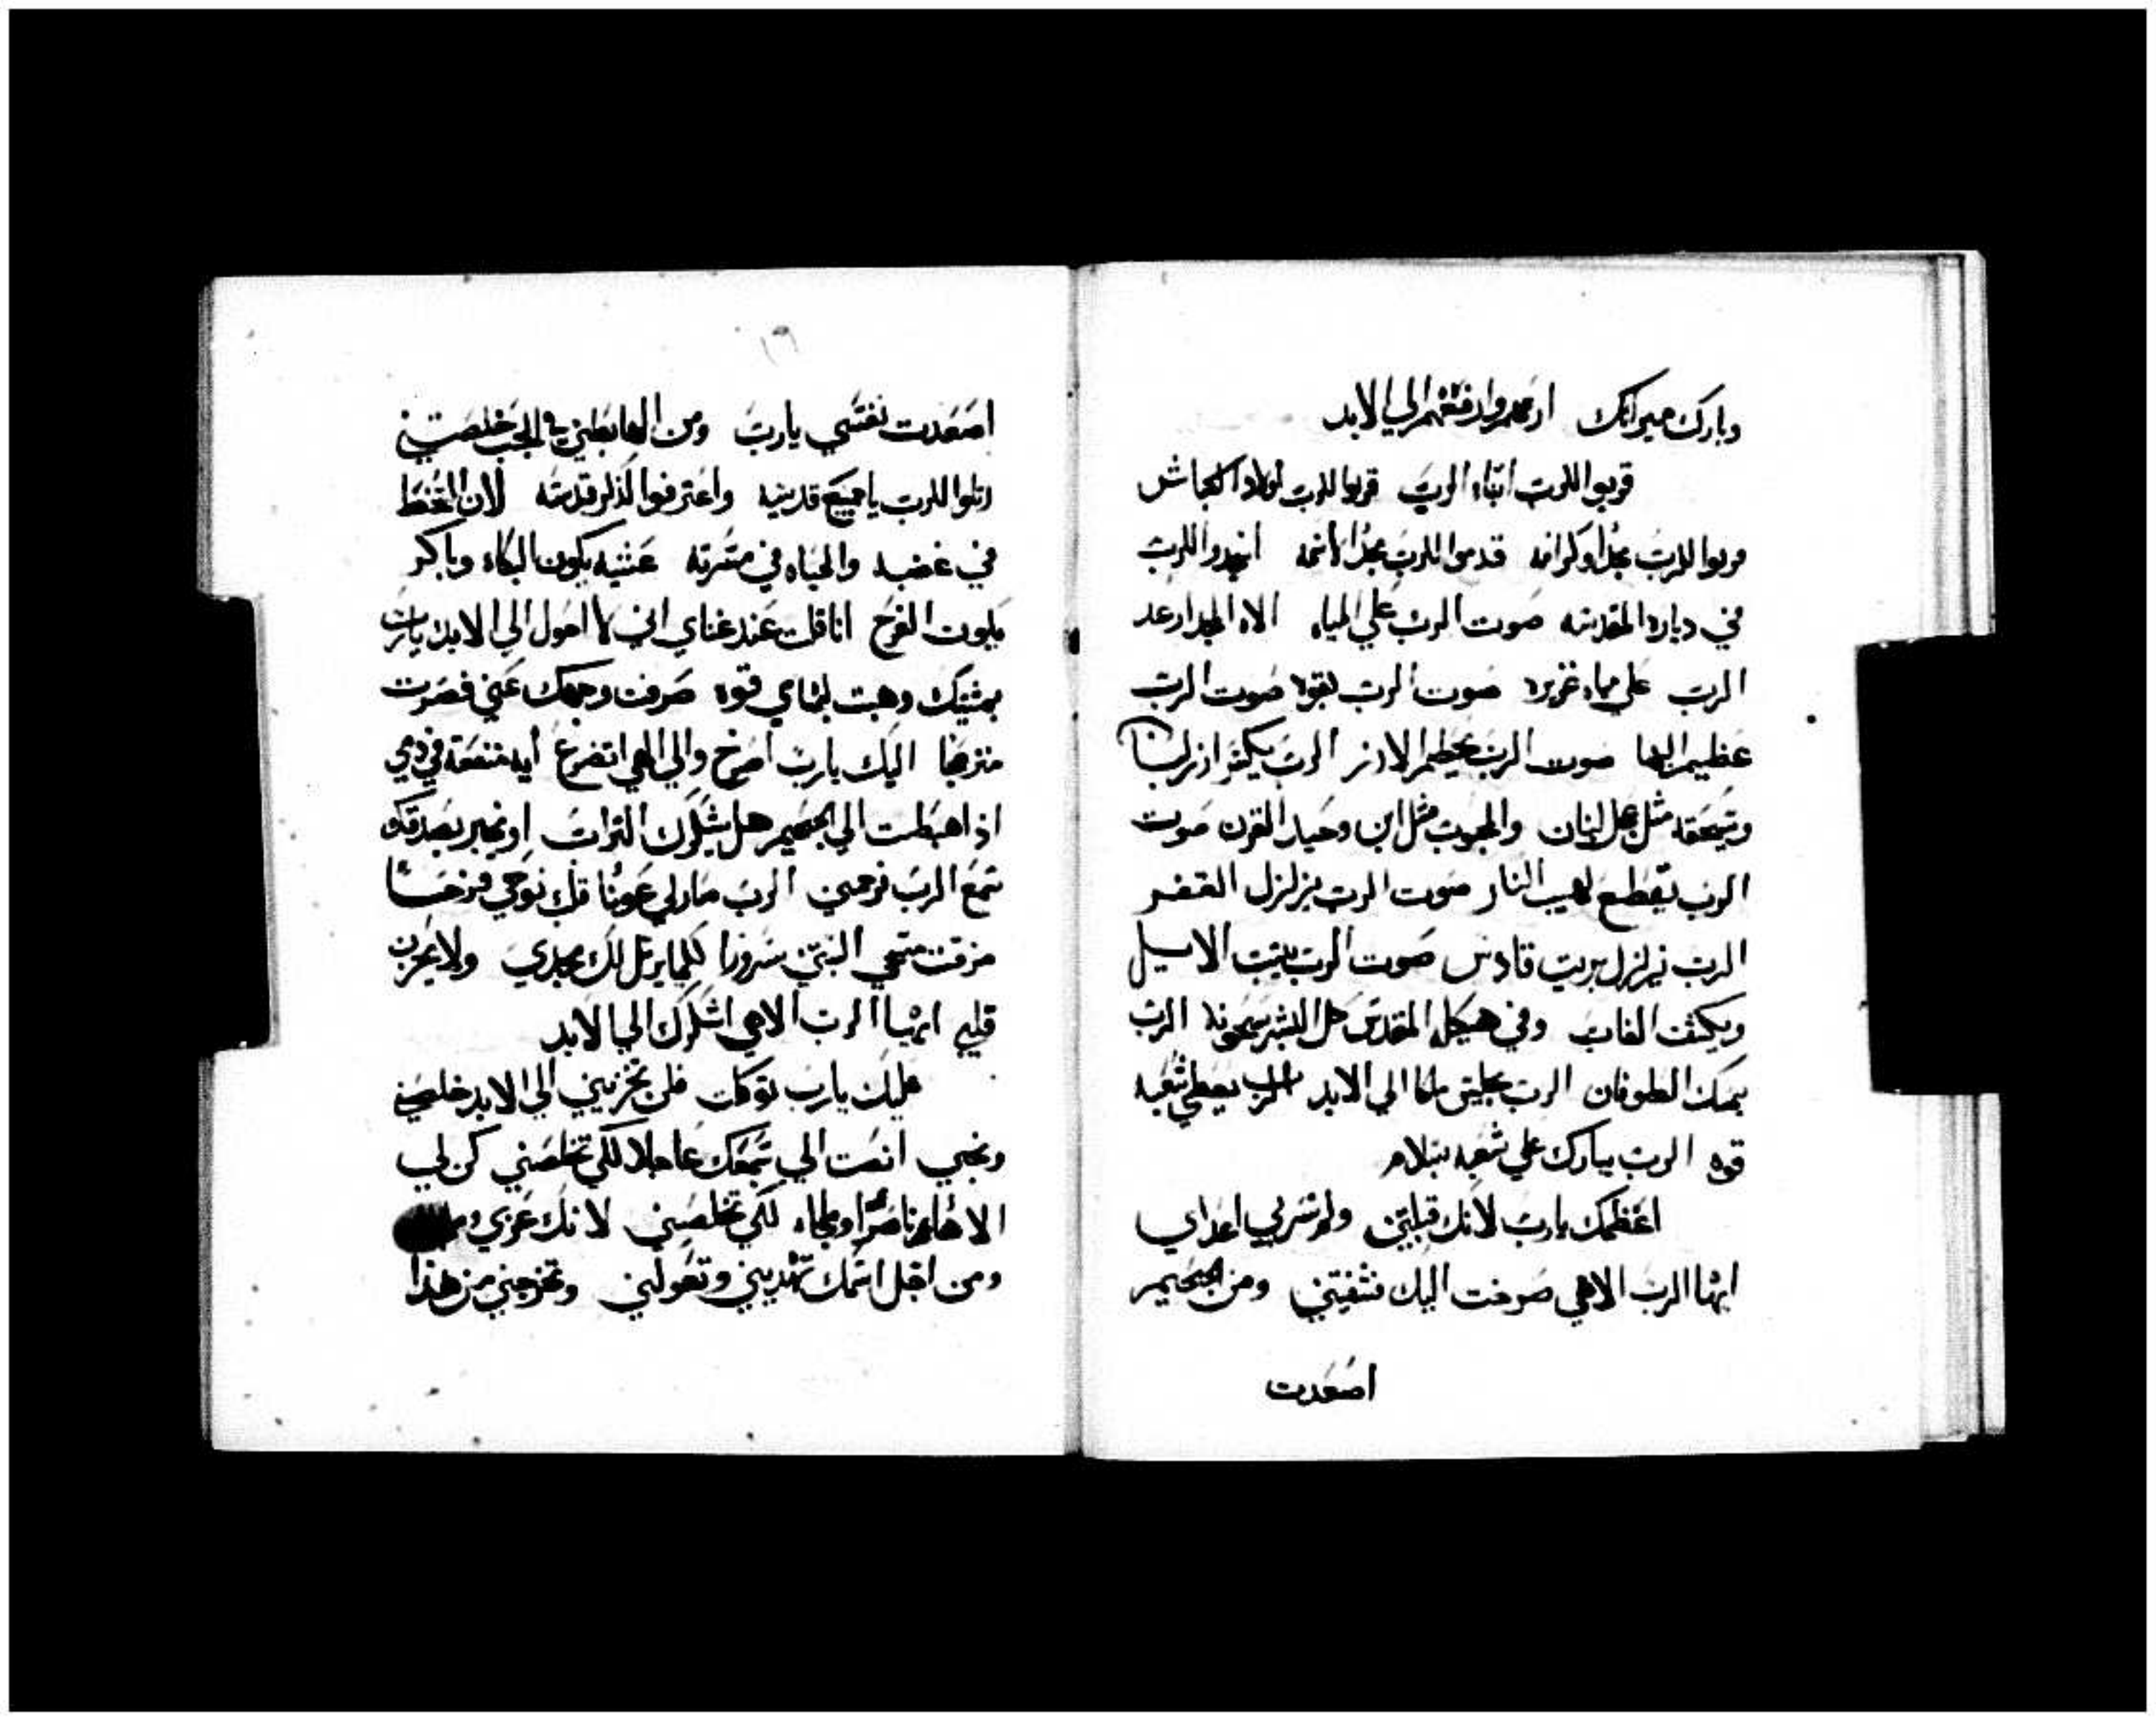 وبارك ميراثك ارعهم وارفعهم الي الابد
قربوا للرب ابناء الرب قربوا للرب اولاد الكباش
قربوا للرب مجداً وكرامه قدموا للرب مجداً لاسمه اسجدوا للرب
في دياره المقدسه صوت الرب علي المياه الاه المجد ارعد
الرب علي مياه غزيره صوت الرب بقوه صوت الرب
عظيم البها صوت الرب يحطم الارز الرب يكسر ارز لبنان
ويسحقه مثل عجل لبنان والمحبوب مثل ابن وحيد القرن صوت
الرب يقطع لهيب النار صوت الرب يزلزل القفر
الرب يزلزل بريت قادس صوت الرب يثبت الاييل
ويكشف الغاب وفي هيكله المقدس كل البشر يمجدونه الرب
يسكن الطوفان الرب يجلس ملكا الي الابد الرب يعطي شعبه
قوه الرب يبارك علي شعبه بسلام
اعظمك يارب لانك قبلتني ولم تسر بي اعداي
ايها الرب الاهي صرخت اليك فشفيتني ومن الجحيم
اصعدت
١٦
اصعدت نفسي يارب ومن الهابطين في الجب خلصتني
رتلوا للرب يا جميع قديسيه واعترفوا لذكر قدسه لان السخط
في غضبه والحياه في مسرته عشيه يكون البكاء وباكر
يكون الفرح انا قلت عند غناي اني لا احول الي الابد يارب
بمشيتك وهبت لبهاي قوه صرفت وجهك عني فصرت
منزعجا اليك يارب اصرخ والي الهي اتضرع أيه منفعة في دمي
اذا هبطت الي الجحيم هل يشكرك التراب او يخبر بصدقك
سمع الرب فرحمني الرب صار لي عوناً قلب نوحي فرحاً
مزقت مسحي البستني سرورا لكيما يرتل لك مجدي ولا يحزن
قلبي ايها الرب الاهي اشكرك الي الابد
عليك يارب توكلت فلن تخزيني الي الابد خلصني
ونجني انصت الي سمعك عاجلا لكي تخلصني كن لي
الاهاً ناصراً وملجاء لكي تخلصني لانك عزي و
ومن اجل اسمك تهديني وتعولني وتخرجني من هذا